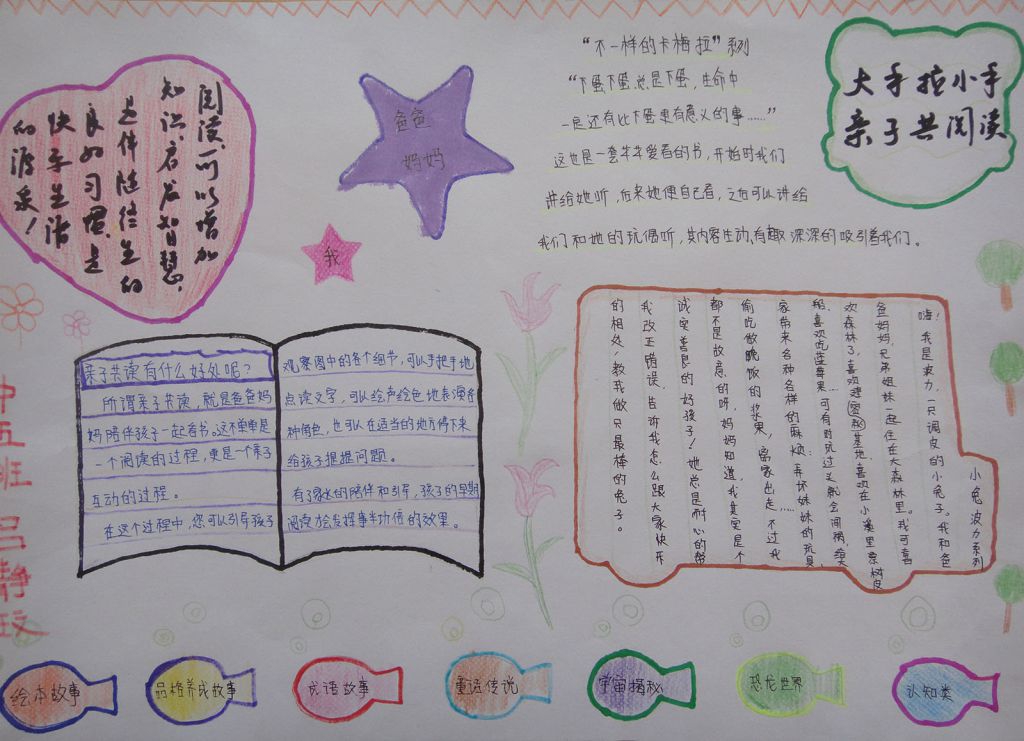 大手拉小手
亲子共阅读
阅读，可以增加
知识、启发智慧，
是伴随终生的
良好习惯，是
快乐生活
的源泉！
爸爸
妈妈
我
“不一样的卡梅拉”系列
“下蛋下蛋总是下蛋，生命中
一定还有比下蛋更有意义的事……”
这也是一套丰丰爱看的书，开始时我们
讲给她听，后来她便自己看，之后可以讲给
我们和她的玩偶听，其内容生动、有趣深深的吸引着我们。
亲子共读有什么好处呢？
所谓亲子共读，就是爸爸妈
妈陪伴孩子一起看书。这不单单是
一个阅读的过程，更是一个亲子
互动的过程。
在这个过程中，您可以引导孩子
观察图中的各个细节，可以手把手地
点读文字，可以绘声绘色地表演各
种角色，也可以在适当的地方停下来
给孩子提提问题。
有了家长的陪伴和引导，孩子的早期
阅读才会发挥事半功倍的效果。
小兔波力系列
嗨！我是波力，一只调皮的小兔子。我和爸
爸妈妈，兄弟姐妹一起住在大森林里。我可喜
欢森林了，喜欢建密秘基地，喜欢在小溪里
喜欢吃蓝莓果，可有时玩过头就会闯祸，
家带来各种各样的麻烦：弄坏妹妹的玩具，
偷吃做晚饭的浆果，离家出走……不过我
都不是故意的呀，妈妈知道，我其实是个
诚实善良的好孩子！她总是耐心的帮
我改正错误，告诉我怎么跟大家快乐
的相处，教我做只最棒的兔子。
中五班 吕静玟
绘本故事
品格养成故事
成语故事
童话传说
宇宙揭秘
恐龙世界
认知类